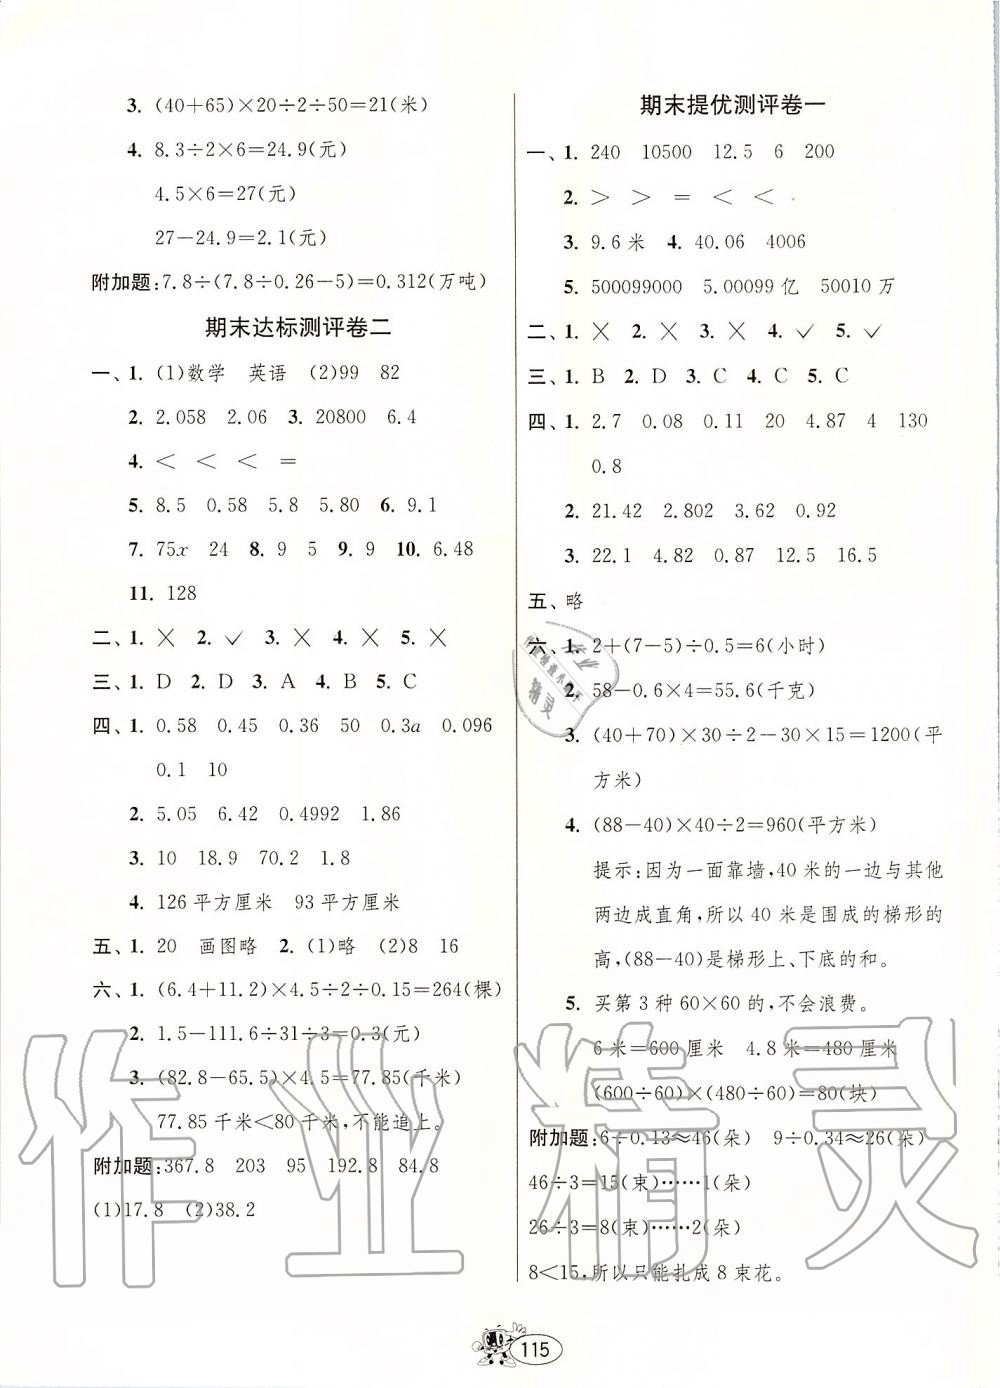 3. (40+65)×20÷2÷50=21(米)
4. 8.3÷2×6=24.9(元)
4.5×6=27(元)
27-24.9=2.1(元)
附加题:7.8÷(7.8÷0.26-5)=0.312(万吨)
期末达标测评卷二
一、1. (1)数学 英语 (2)99 82
2. 2.058 2.06 3. 20800 6.4
4. < < < =
5. 8.5 0.58 5.8 5.80 6. 9.1
7. 75x 24 8. 9 5 9. 9 10. 6.48
11. 128
二、1. × 2. ✓ 3. × 4. × 5. ×
三、1. D 2. D 3. A 4. B 5. C
四、1. 0.58 0.45 0.36 50 0.3a 0.096
0.1 10
2. 5.05 6.42 0.4992 1.86
3. 10 18.9 70.2 1.8
4. 126平方厘米 93平方厘米
五、1. 20 画图略 2. (1)略 (2)8 16
六、1. (6.4+11.2)×4.5÷2÷0.15=264(棵)
2. 1.5-111.6÷31÷3=0.3(元)
3. (82.8-65.5)×4.5=77.85(千米)
77.85千米<80千米,不能追上。
附加题:367.8 203 95 192.8 84.8
(1)17.8 (2)38.2
期末提优测评卷一
一、1. 240 10500 12.5 6 200
2. > > = < <
3. 9.6米 4. 40.06 4006
5. 500099000 5.00099亿 50010万
二、1. × 2. × 3. × 4. ✓ 5. ✓
三、1. B 2. D 3. C 4. C 5. C
四、1. 2.7 0.08 0.11 20 4.87 4 130
0.8
2. 21.42 2.802 3.62 0.92
3. 22.1 4.82 0.87 12.5 16.5
五、略
六、1. 2+(7-5)÷0.5=6(小时)
2. 58-0.6×4=55.6(千克)
3. (40+70)×30÷2-30×15=1200(平
方米)
4. (88-40)×40÷2=960(平方米)
提示:因为一面靠墙,40米的一边与其他
两边成直角,所以40米是围成的梯形的
高,(88-40)是梯形上、下底的和。
5. 买第3种60×60的,不会浪费。
6米=600厘米 4.8米=480厘米
(600÷60)×(480÷60)=80(块)
附加题:6÷0.13≈46(朵) 9÷0.34≈26(朵)
46÷3=15(束)……1(朵)
26÷3=8(束)……2(朵)
8<15,所以只能扎成8束花。
作业精灵
115